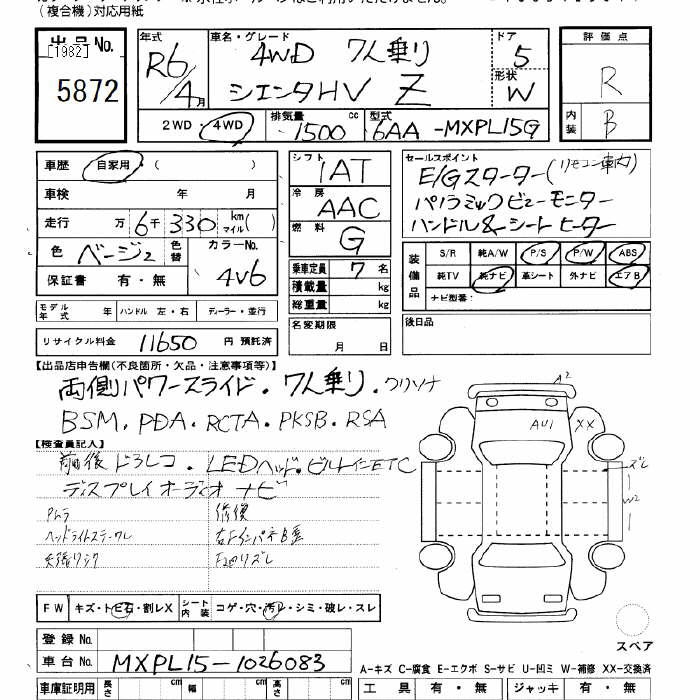 (複合機)対応用紙
出品No. 年式 車名・グレード ドア 評価点
[1982] 4WD 7人乗り 5
5872 R6/4月 シエンタHV Z 形状 W R
2WD・4WD 排気量 1500 cc 型式 6AA-MXPL15G 内装 B
車歴 自家用・( ) シフト IAT セールスポイント
車検 年 月 冷房 AAC E/Gスターター(リモコン車内)
走行 万 6千 330 km マイル( ) パノラミックビューモニター
色 ベージュ 色替 カラーNo. 4V6 燃料 G ハンドル&シートヒーター
保証書 有・無 乗車定員 7名 装備品 S/R 純A/W P/S P/W ABS
積載量 kg 純TV 純ナビ 革シート 外ナビ エアB
モデル年式 年 ハンドル 左・右 ディーラー・並行 総重量 kg ナビ型番:
リサイクル料金 11650 円 預託済 名変期限 月 日 後日品
【出品店申告欄(不良箇所・欠品・注意事項等)】
両側パワースライド・7人乗り・クリソナ
BSM, PDA, RCTA, PKSB, RSA
【検査員記入】
前後ドラレコ・LEDヘッド・ビルトインETC
ディスプレイオーディオ ナビ
修復
A2
AU1 XX
ズレ
W2
FW キズ・トビ石・割レX シート内装 コゲ・穴・汚レ・シミ・破レ・スレ
登録No.
車台No. MXPL15-1026083
スペア
A-キズ C-腐食 E-エクボ S-サビ U-凹ミ W-補修 XX-交換済
車庫証明用 長さ cm 幅 cm 高さ cm 工具 有・無 ジャッキ 有・無